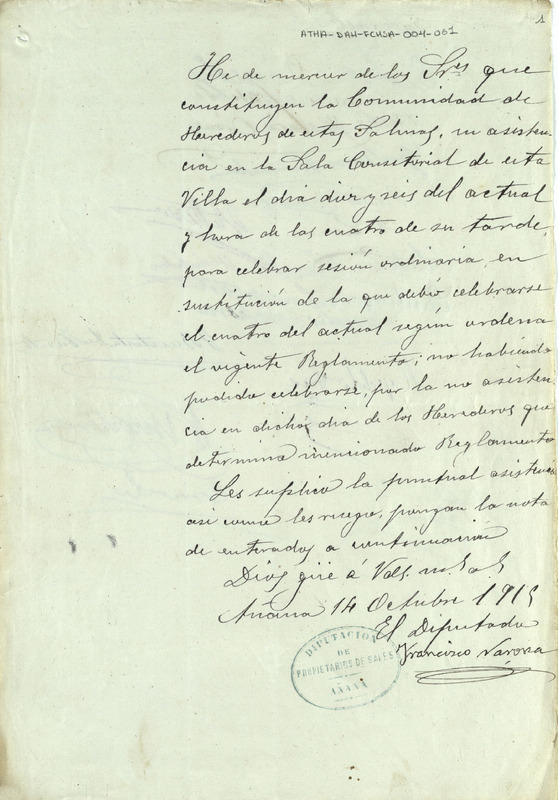 ATHA-DAH-FCHSA-004-001
1
He de merecer de los Sres que
constituyen la Comunidad de
Herederos de estas Salinas, su asisten-
cia en la Sala Consitorial de esta
Villa el dia diez y seis del actual
y hora de las cuatro de su tarde,
para celebrar sesión ordinaria, en
sustitución de la que debió celebrarse
el cuatro del actual según ordena
el vigente Reglamento; no habiendo
podido celebrarse, por la no asisten-
cia en dicho dia de los Herederos que
determina mencionado Reglamento
Les suplico la puntual asistencia
asi como les ruego, pongan la nota
de enterados a continuación
Dios gue á Vds. m. s. a. s
Añana 14 Octubre 1915
El Diputado
Francisco Varona
DIPUTACIÓN
DE
PROPIETARIOS DE SALES
AÑANA